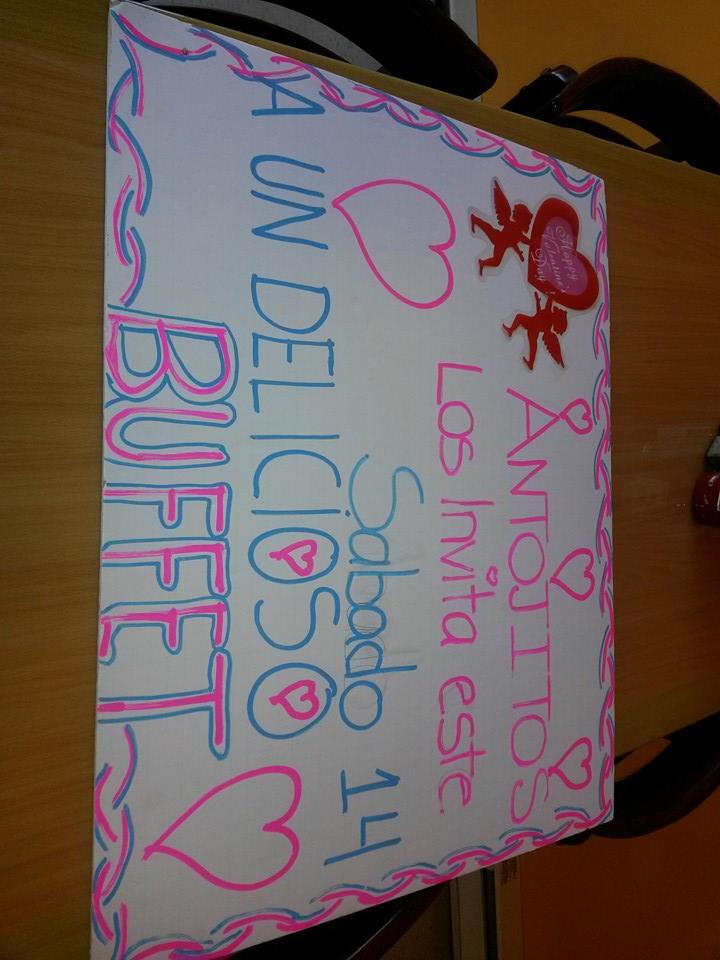 Happy
Valentine's
Day!
ANTOJITOS
Los Invita este
Sabado 14
A UN DELICIOSO
BUFFET